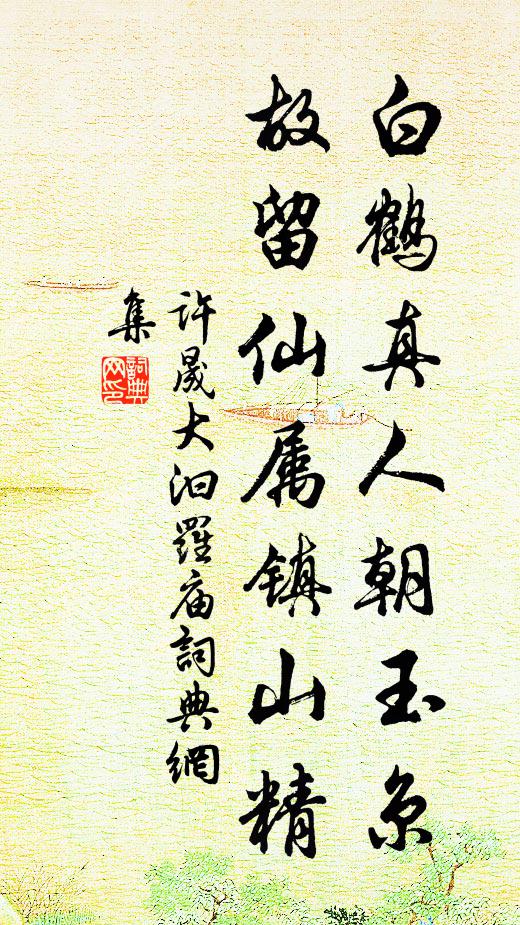 白鹤真人朝玉京
故留仙属镇山精
许晟大汨羅庙詞典網
集
詞典
网印